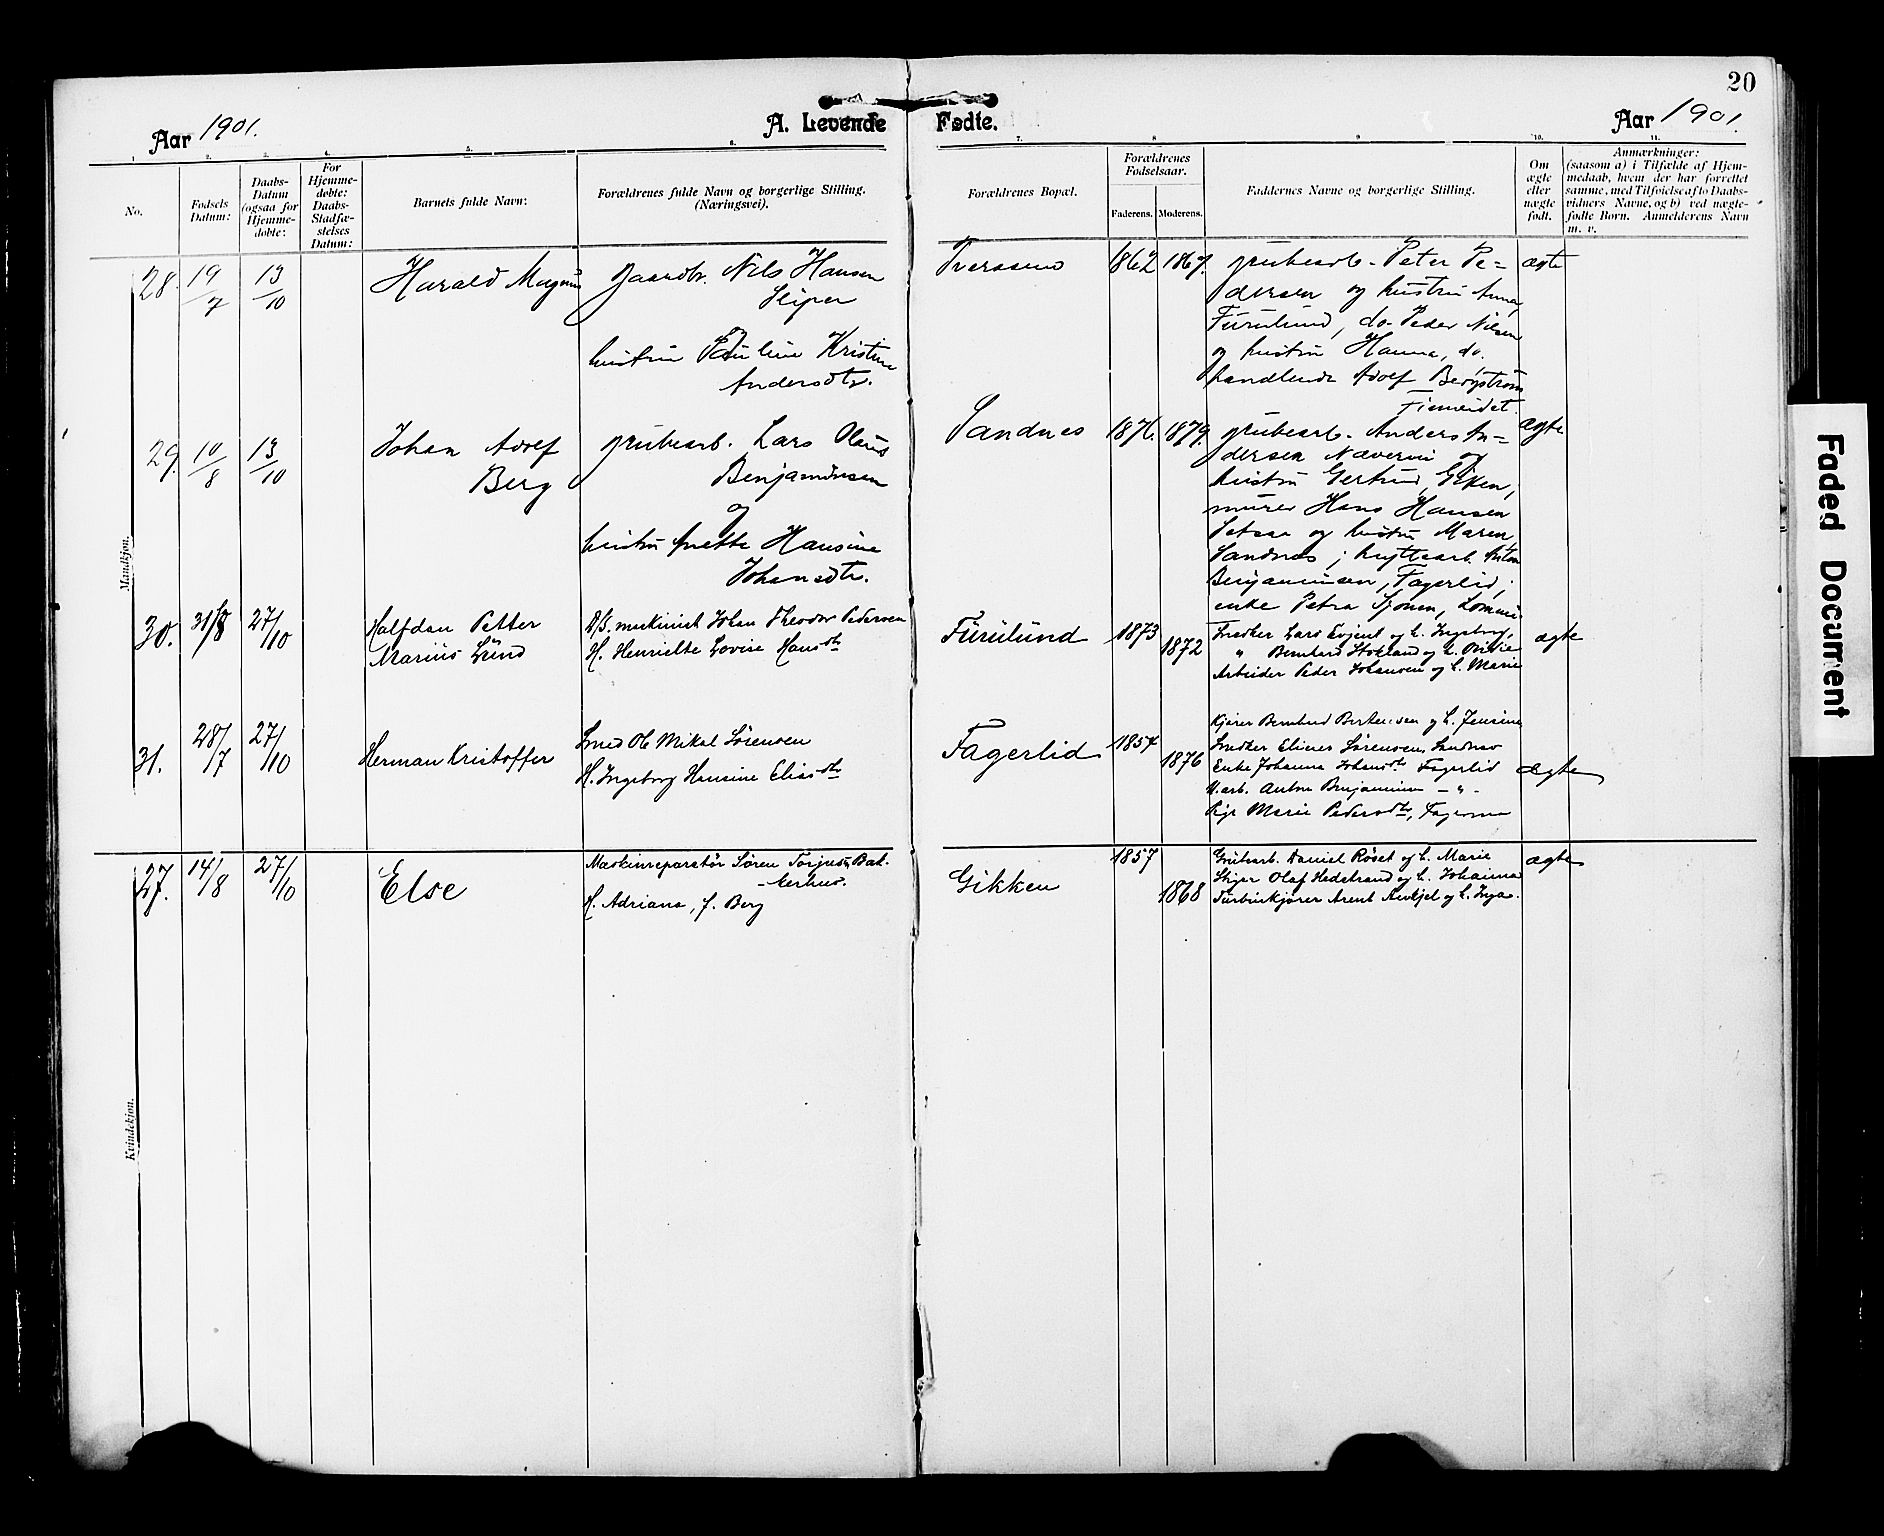 20
Aar 1901.
A. Levende Fødte.
Aar 1901.
1. 2. 3. 4. 5. 6. 7. 8 9. 10. 11.
No.
Fødsels Datum:
Daabs-Datum (ogsaa for Hjemme-døbte:
For Hjemme-døbte: Daabs-Stadfæ-stelses Datum:
Barnets fulde Navn:
Forældrenes fulde Navn og borgerlige Stilling. (Næringsvei).
Forældrenes Bopæl.
Forældrenes Fødselsaar.
Faderens. Moderens.
Faddernes Navne og borgerlige Stilling.
Om ægte eller uægte født.
Anmærkninger: (saasom a) i Tilfælde af Hjem-medaab, hvem der har forrettet samme, med Tilføielse af to Daabs-vidners Navne, og b) ved uægte-fødte Børn. Anmelderens Navn m. v.
Mandkjøn.
28. 19/7 13/10
Harald Magnus
gaardbr. Nils Hansen
hustru Pauline Kristine
Andersdtr.
Tverssund
1862 1867.
grubearb. Peter Pe-
dersen og hustru Anna,
Furulund, do. Peder Nilsen
og hustru Hanna, do.
handlende Adolf Bergström
Finneidet.
ægte
29. 10/8 13/10
Johan Adolf
Berg
grubearb. Lars Olaus
Benjaminsen
og
hustru Anette Hansine
Johansdtr.
Sandnes
1876. 1879.
grubearb. Anders An-
dersen Næverni og
hustru Gertrud, Giken,
murer Hans Hansen
og hustru Maren,
Sandnes; hyttearb. Anton
Benjaminsen, Fagerlid;
enke Petra Sjønen,
ægte
30. 31/8 27/10
Halfdan Petter
Marius Lund
maskinist Johan Theodor Pedersen
H. Henriette Lovise Hansdtr
Furulund
1873
1872
Snedker Lars Evjent og h. Ingeborg,
" Bernhard Stokland og h.
Arbeider Peder Johansen og h. Marie
ægte
31. 28/7 27/10
Herman Kristoffer
Smed Ole Mikal Sørensen
H. Ingeborg Hansine Eliasdtr
Fagerlid
1854
1876
Kjører Bernhard Berthensen og h. Jensine
Snedker Elieser Sørensen, Sandnes
Enke Johanna Johansdtr Fagerlid
H.arb. Anton Benjaminsen - " -
Pige Marie Pedersdtr, Fagermo
ægte
Kvindekjøn.
27. 14/8 27/10
Else
Maskinreparatør Søren Torjus Bak-
kerhus.
H. Adriana, f. Berg
Gikken
1857
1868
Grubarb. Daniel Røset og h. Marie
Stiger Olaf Hedstrand og h. Johanna
Turbinkjører Arent og h. Inga.
ægte
Faded Document